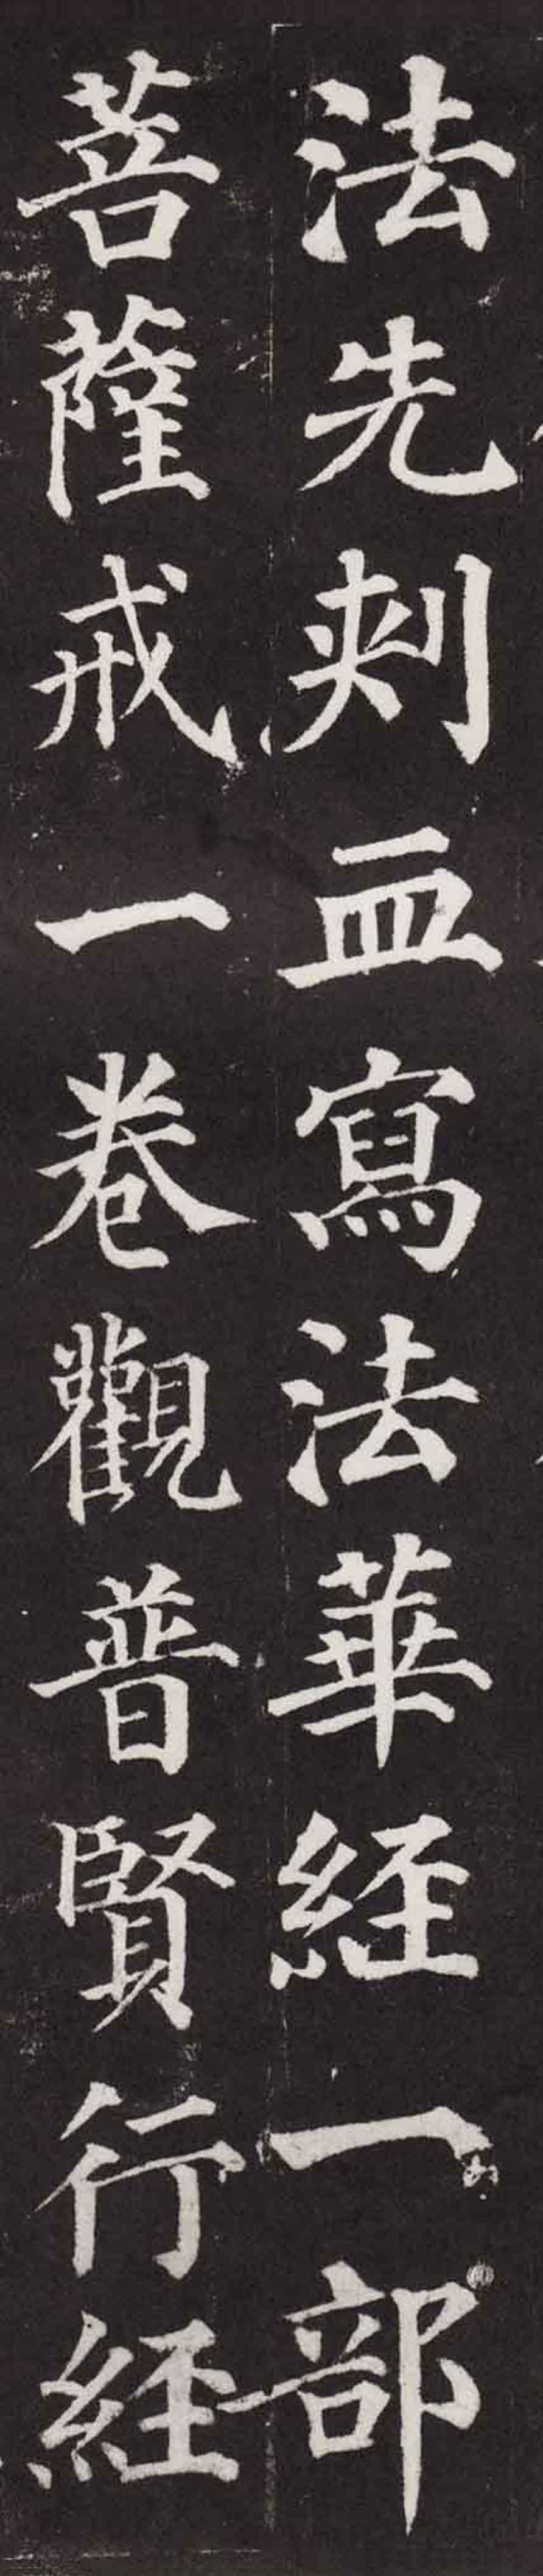 法先刺血寫法華經一部
菩薩戒一卷觀普賢行經